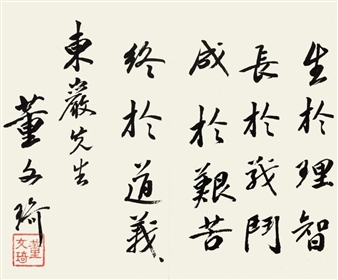 生於理智
長於戰鬥
成於艱苦
終於道義、
東嚴先生
董文琦
董文琦